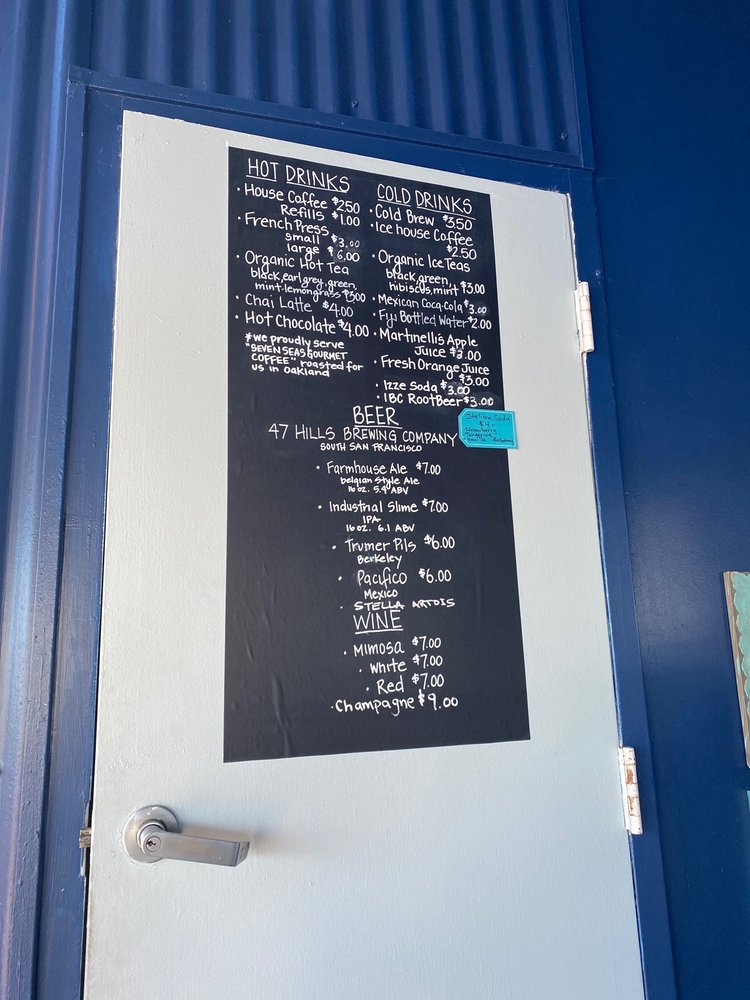 HOT DRINKS
• House Coffee $2.50
Refills $1.00
• French Press
small $3.00
large $6.00
• Organic Hot Tea
black, earl grey, green,
mint-lemongrass $3.00
• Chai Latte $4.00
• Hot Chocolate $4.00
*we proudly serve
"SEVEN SEAS GOURMET
COFFEE" roasted for
us in oakland
COLD DRINKS
• Cold Brew $3.50
• Ice house Coffee
$2.50
• Organic Ice Teas
black, green,
hibiscus, mint $3.00
• Mexican Coca-Cola $3.00
• Fiji Bottled Water $2.00
• Martinelli's Apple
Juice $3.00
• Fresh Orange Juice
$3.00
• Izze Soda $3.00
• IBC Root Beer $3.00
Italian Soda
$4-
Strawberry
Vanilla
BEER
47 HILLS BREWING COMPANY
SOUTH SAN FRANCISCO
• Farmhouse Ale $7.00
belgian Style Ale
16 oz. 5.4 ABV
• Industrial Slime $7.00
IPA
16 oz. 6.1 ABV
• Trumer Pils $6.00
Berkeley
• Pacifico $6.00
Mexico
• STELLA ARTOIS
WINE
• Mimosa $7.00
• White $7.00
• Red $7.00
• Champagne $9.00